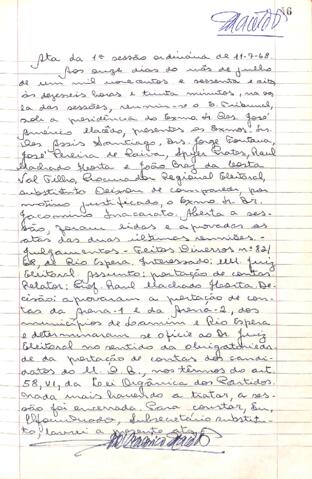 16
Ata da 1ª sessão ordinária de 11-7-68.
Aos onze dias do mês de julho
de um mil novecentos e sessenta e oito,
às dezesseis horas e trinta minutos, na sa-
la das sessões, reuniu-se o E. Tribunal,
sob a presidência do Exmo. Sr. Des. José
Américo Macêdo, presentes os Exmos. Srs.
Des. Assis Santiago, Drs. Jorge Fontana,
José Pereira de Paiva, Prates, Raul
Machado Horta e João Braz da Costa
Val Filho, Procurador Regional Eleitoral,
substituto. Deixou de comparecer, por
motivo justificado, o Exmo. Sr. Dr.
Jacomino Inacarato. Aberta a ses-
são, foram lidas e aprovadas as
atas das duas últimas reuniões.
Julgamentos - Feitos Diversos nº 82/
68, de Rio Espera. Interessado: MM. Juiz
Eleitoral. Assunto: prestação de contas.
Relator: Prof. Raul Machado Horta. De-
cisão: aprovaram a prestação de con-
tas da Arena-1 e da Arena-2, dos
municípios de Lamim e Rio Espera
e determinaram se oficie ao Dr. Juiz
Eleitoral no sentido da obrigatorieda-
de da prestação de contas dos candi-
datos do M.D.B., nos têrmos do art.
58, VI, da Lei Orgânica dos Partidos.
Nada mais havendo a tratar, a ses-
são foi encerrada. Para constar, Eu,
Subsecretário substitu-
to, lavrei a presente ata.